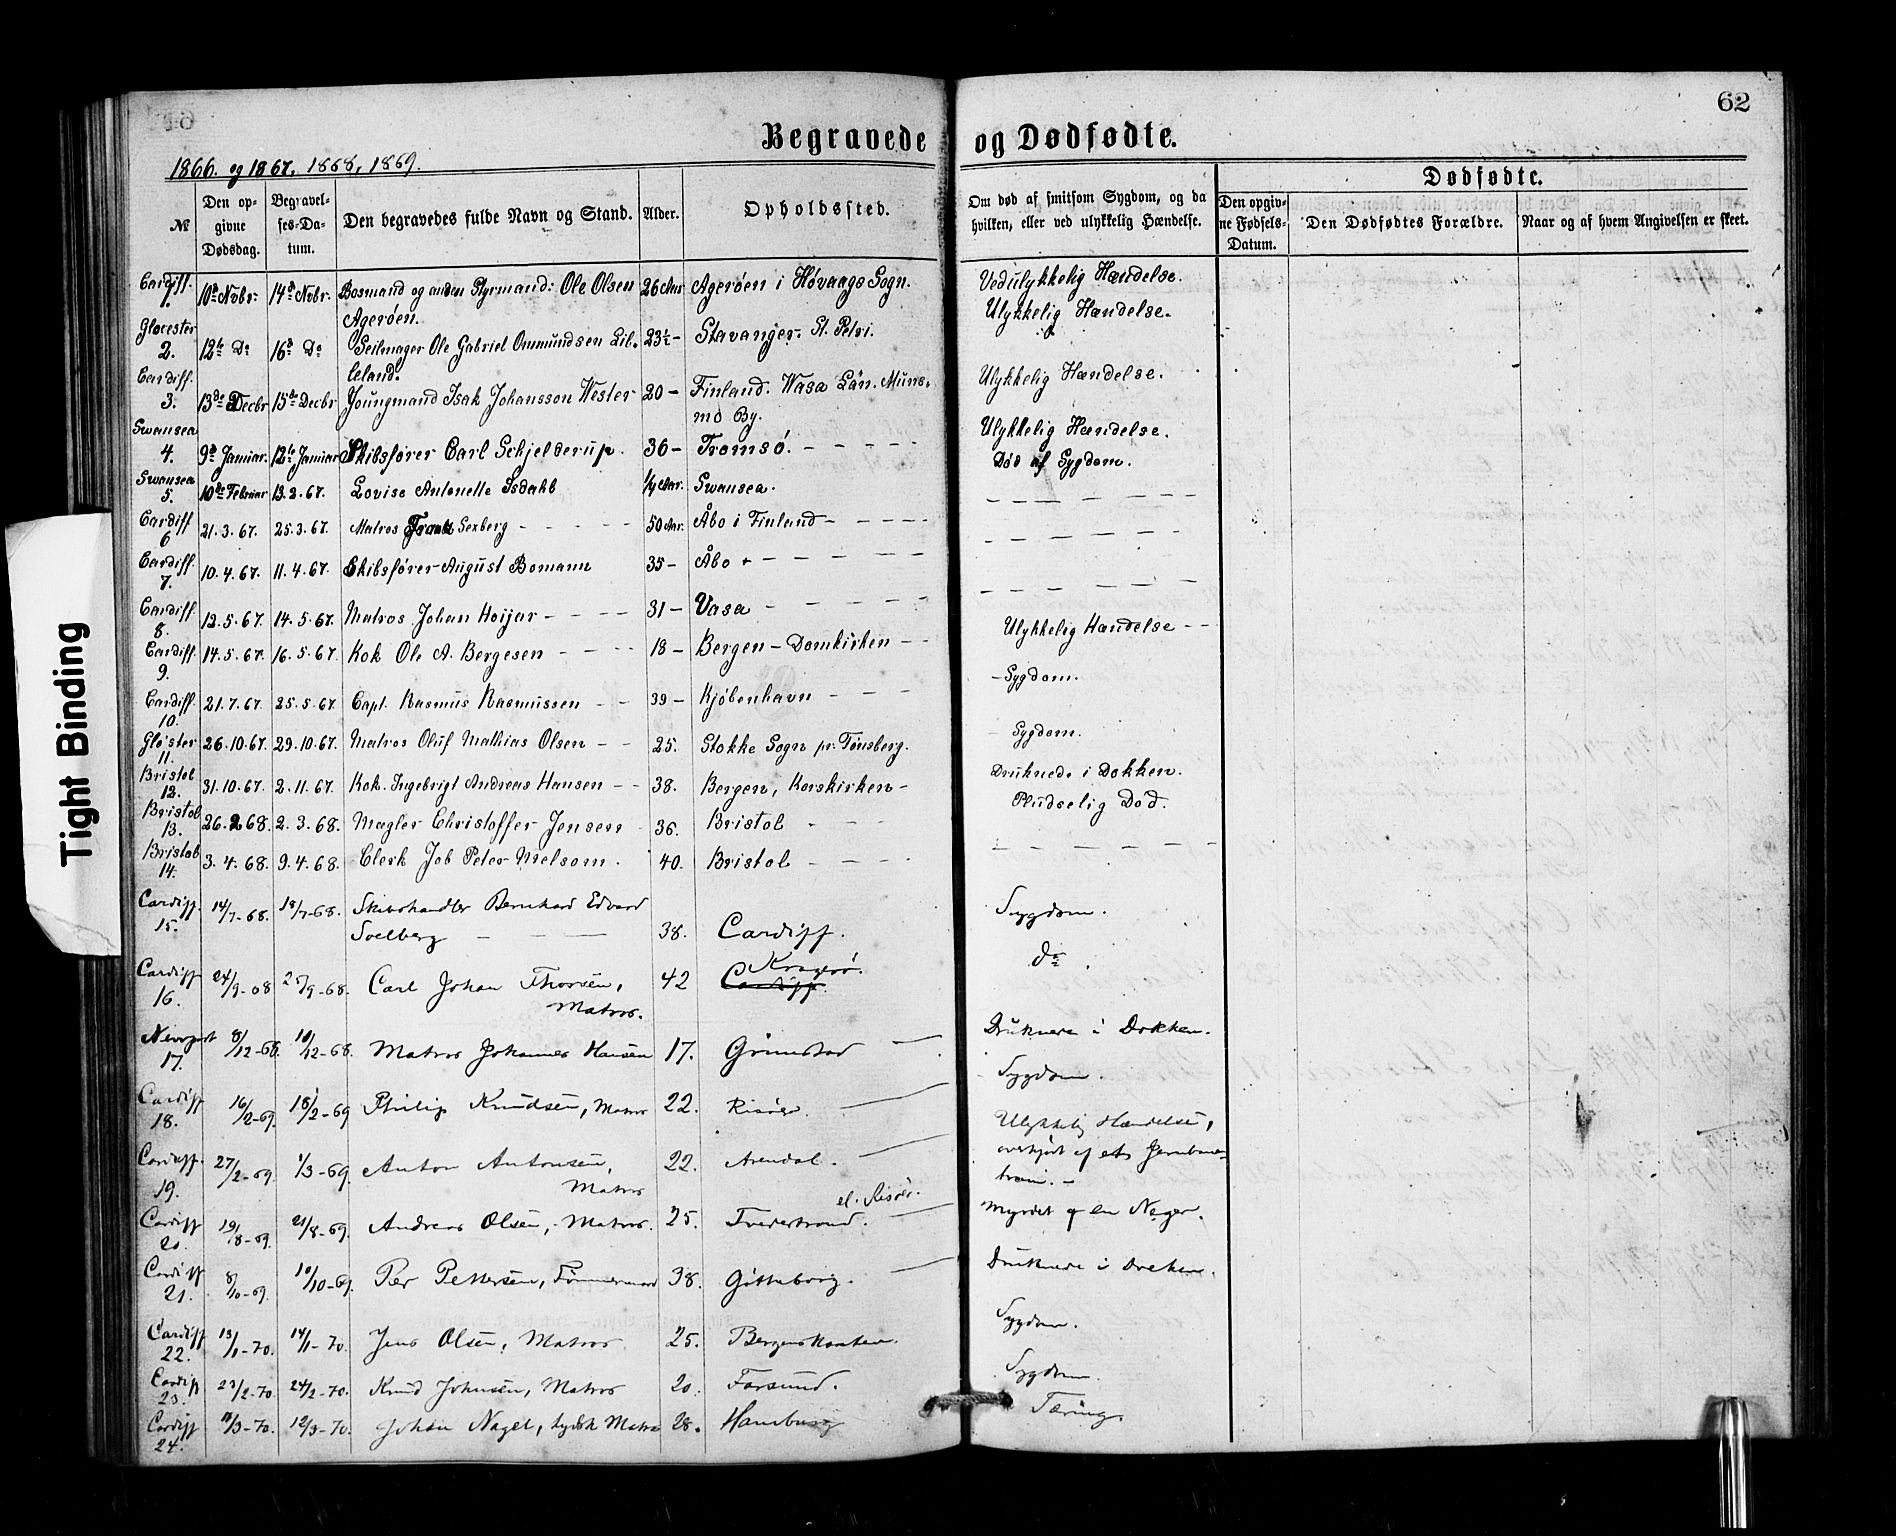 62
Begravede og Dødfødte.
1866. og 1867, 1868, 1869.
Dødfødte.
№
Den opgivne Dødsdag.
Begravelses-Datum.
Den begravedes fulde Navn og Stand.
Alder.
Opholdssted.
Om død af smitsom Sygdom, og da hvilken, eller ved ulykkelig Hændelse.
Den opgivne Fødsels-Datum.
Den Dødfødtes Forældre.
Naar og af hvem Angivelsen er skeet.
Cardiff. 1 10d Nvbr. 14d Nvbr. Bosmand og anden Styrmand: Ole Olsen 26 Aar Agerøen i Høvaags Sogn. Ved ulykkelig Hændelse.
Agerøen. Ulykkelig Hændelse.
Glocester 2. 12te Do 16d Do Seilmager Ole Gabriel Ommundsen Lil- 23½ - Stavanger. St. Petri.
leland.
Cardiff. 3. 13de Decbr 15de Decbr Joungmand Isak Johansson Wester 20 - Finland. Wasa Län. Muns- Ulykkelig Hændelse.
mo By.
Swansea 4. 9d Januar. 12te Januar Skibsfører Carl Schjelderup. 36 - Tromsö. - - - - - Ulykkelig Hændelse.
Død af Sygdom.
Swansea 5. 10de Februar 13.2.67. Lovise Antonette Isdahl ¼ Aar. Swansea.
Cardiff 6 21.3.67. 25.3.67. Matros Frants Sexberg - - - - 50 Aar. Åbo i Finland - - - - -
Cardiff 7. 10.4.67. 11.4.67. Skibsfører August Bomann 35 - Åbo + - - - - -
Cardiff 8. 12.5.67. 14.5.67. Matros Johan Hoijar - - - - 31 - Vasa - - - - -
Cardiff 9. 14.5.67. 16.5.67. Kok Ole A. Bergesen - - - - 18 - Bergen - Domkirken - - Ulykkelig Hændelse - -
Cardiff 10. 21.7.67. 25.5.67. Capt. Rasmus Rasmussen - - 39 - Kjöbenhavn - - - - Sygdom.
Gloster 11. 26.10.67. 29.10.67. Matros Oluf Mathias Olsen - - 25. Stokke Sogn pr. Tønsberg. - Sygdom.
Bristol 12. 31.10.67. 2.11.67. Kok Ingebrigt Andreas Hansen - - 38. Bergen, Korskirken - Druknede i Dokken.
Bristol 13. 26.2.68. 2.3.68. Mægler Christoffer Jensen 36. Bristol - - - Pludselig Død.
Bristol 14. 3.4.68. 9.4.68. Clerk Job Peter Melsom. 40. Bristol - - - -
Cardiff. 15. 14/7-68. 18/7-68. Skibshandler Bernhard Edvard Sygdom.
Soelberg - - - 38. Cardiff.
Cardiff 16. 24/9-68 25/9-68. Carl Johan Thorsen, 42 Cardiff. Kragerö. do
Matros.
Newport 17. 8/12-68. 10/12-68. Matros Johannes Hansen 17. Grimstad - Druknede i Dokken.
Cardiff 18. 16/2-69. 18/2-69 Philip Knudsen, Matros 22. Risöer. - Sygdom.
Cardiff. 19. 27/2-69. 1/3-69. Anton Antonsen, 22. Arendal. - Ulykkelig Hændelse,
Matros overkjört af et Jernbane-
train. -
Cardiff 20. 19/8-69. 21/8-69. Andreas Olsen, Matros. 25. Tvedestrand. el. Risöer. - Myrdet af en Neger.
Cardiff 21. 8/10-69. 10/10-69. Per Pettersen, Tömmermand 38. Götteborg. - Druknede i Docken.
Cardiff 22. 13/1-70. 14/1-70. Jens Olsen, Matros 25. Bergenskanten. Sygdom.
Cardiff 23. 23/2-70. 24/2-70. Knud Johnsen, Matros 20. Farsund. Sygdom.
Cardiff 24. 12/3-70. Johan Nagel, tydsk Matros 28. Hamburg Tæring.
Tight Binding